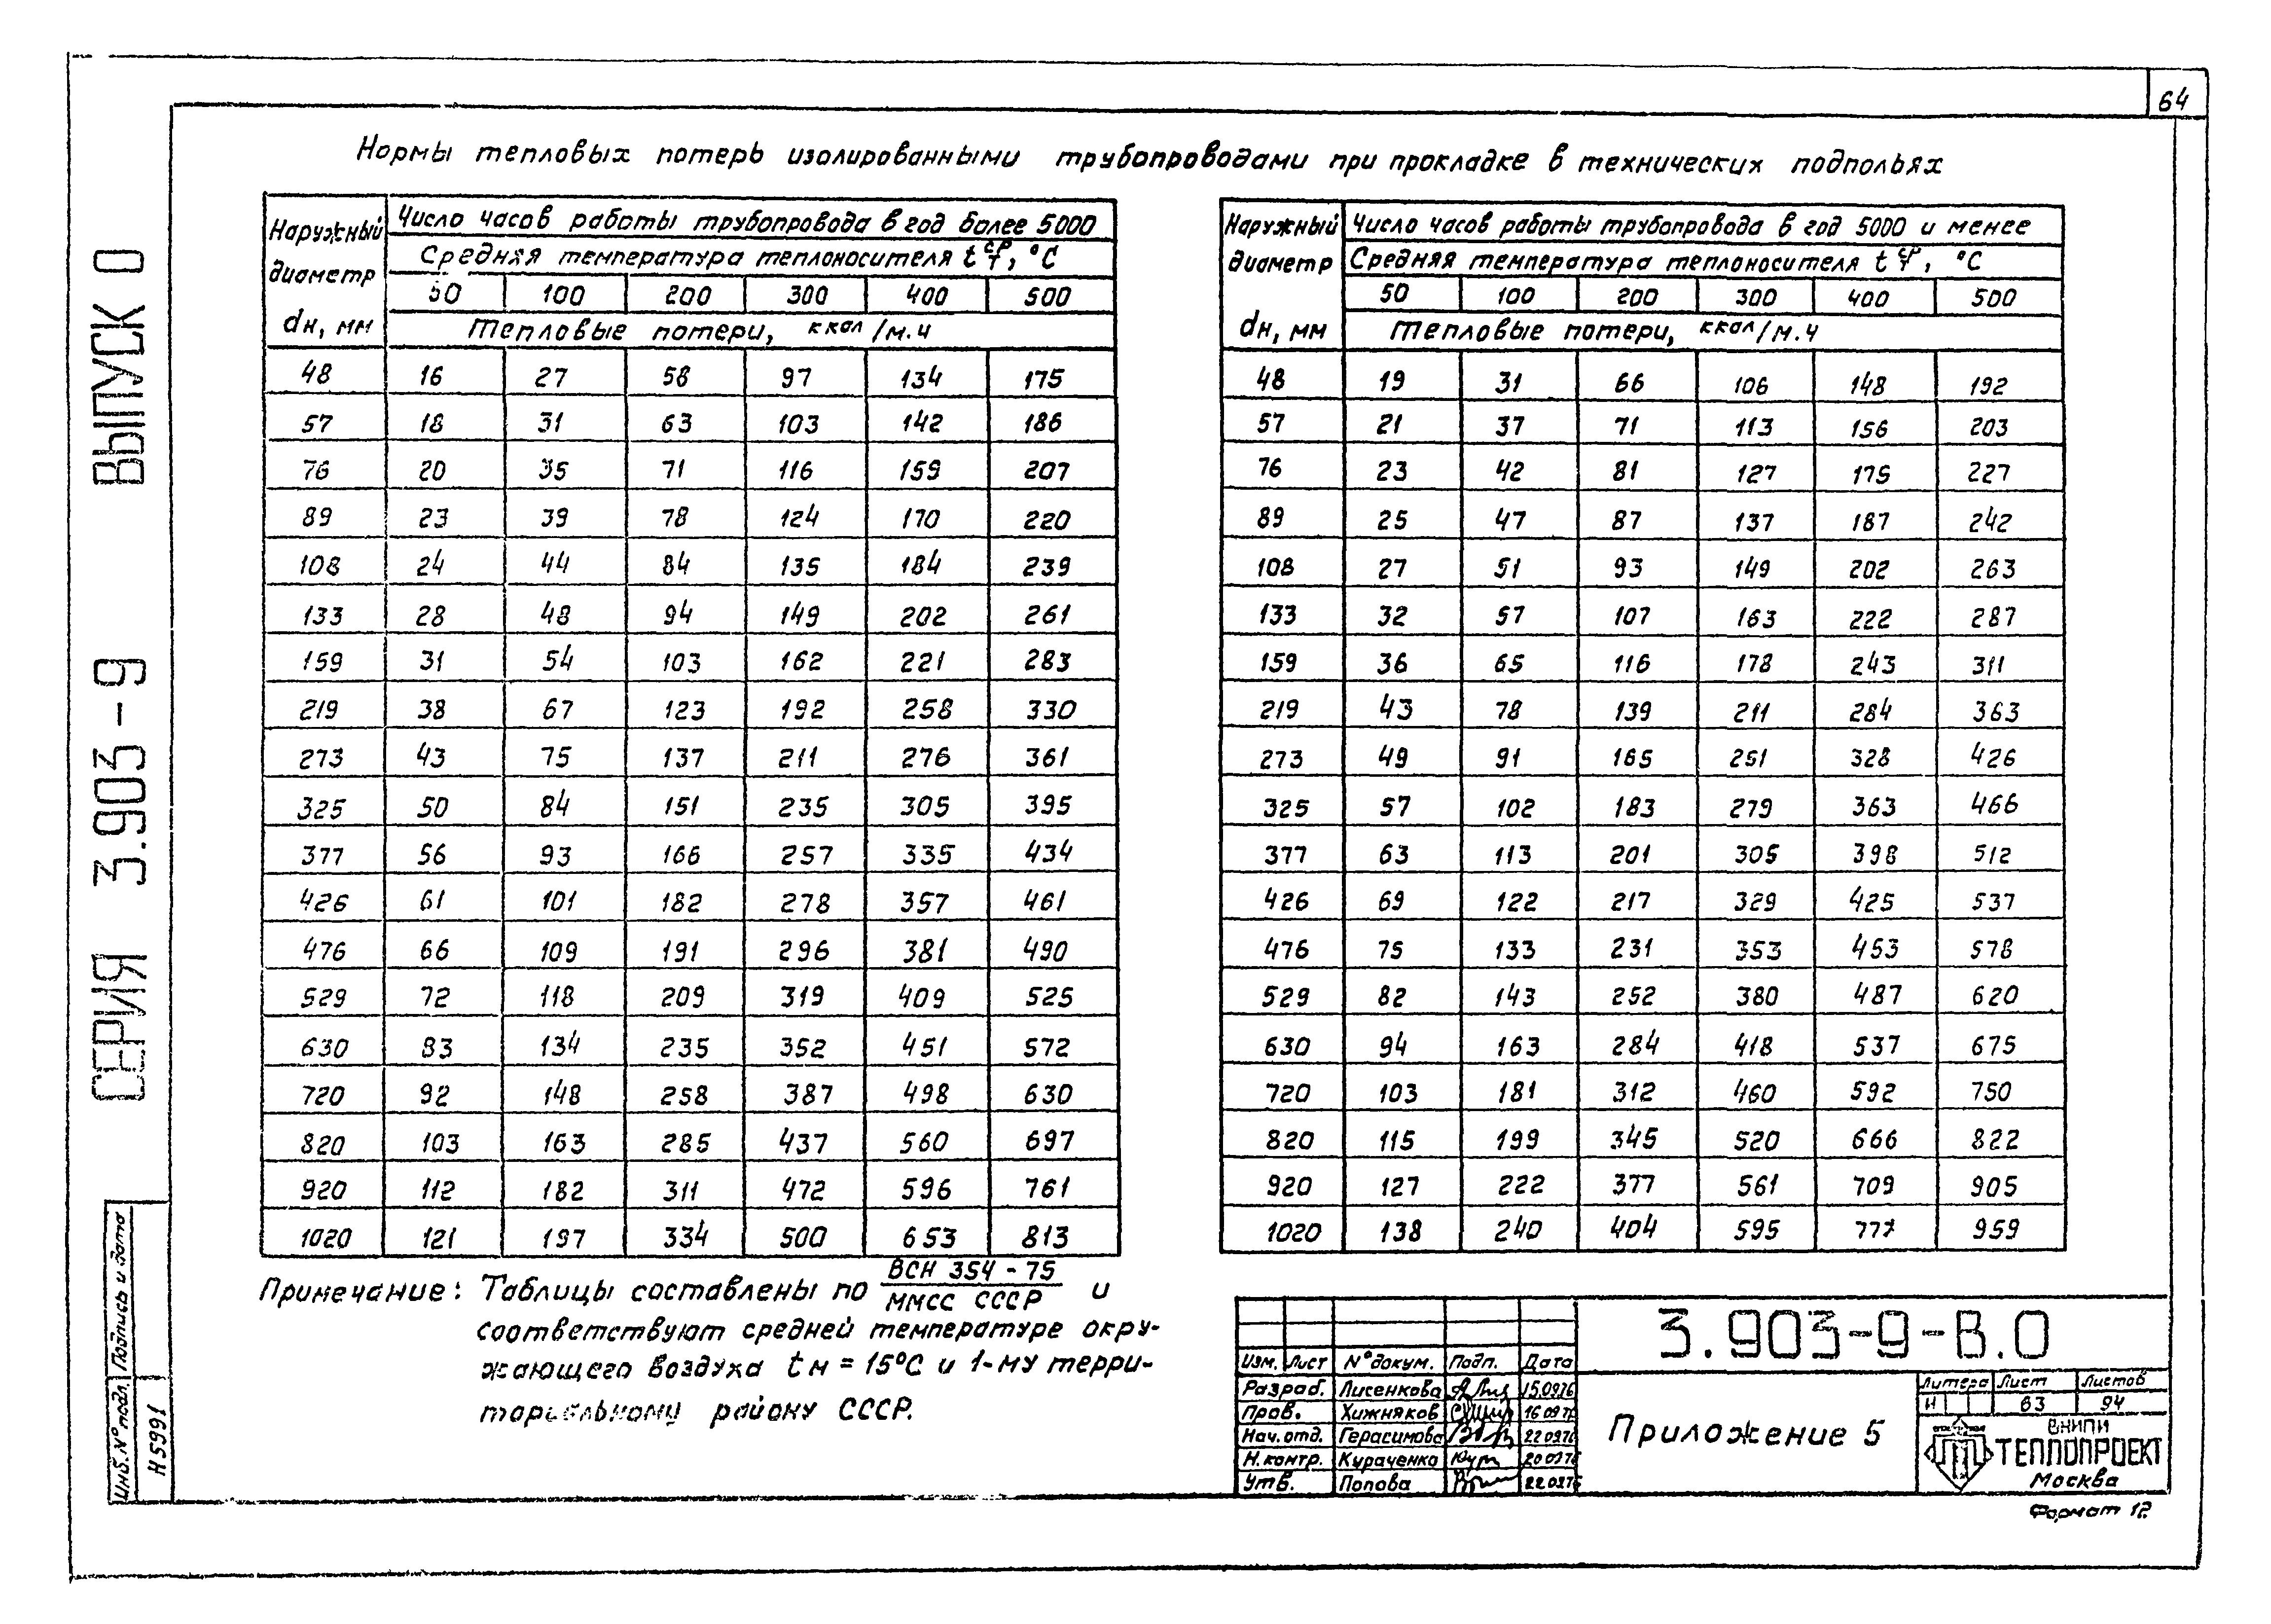 64
Нормы тепловых потерь изолированными трубопроводами при прокладке в технических подпольях
Наружный диаметр dн, мм
Число часов работы трубопровода в год более 5000
Средняя температура теплоносителя t ср т, °С
50 100 200 300 400 500
Тепловые потери, ккал/м.ч
48 16 27 58 97 134 175
57 18 31 63 103 142 186
76 20 35 71 116 159 207
89 23 39 78 124 170 220
108 24 44 84 135 184 239
133 28 48 94 149 202 261
159 31 54 103 162 221 283
219 38 67 123 192 258 330
273 43 75 137 211 276 361
325 50 84 151 235 305 395
377 56 93 166 257 335 434
426 61 101 182 278 357 461
476 66 109 191 296 381 490
529 72 118 209 319 409 525
630 83 134 235 352 451 572
720 92 148 258 387 498 630
820 103 163 285 437 560 697
920 112 182 311 472 596 761
1020 121 197 334 500 653 813
Наружный диаметр dн, мм
Число часов работы трубопровода в год 5000 и менее
Средняя температура теплоносителя t ср т, °С
50 100 200 300 400 500
Тепловые потери, ккал/м.ч
48 19 31 66 106 148 192
57 21 37 71 113 156 203
76 23 42 81 127 175 227
89 25 47 87 137 187 242
108 27 51 93 149 202 263
133 32 57 107 163 222 287
159 36 65 116 178 243 311
219 43 78 139 211 284 363
273 49 91 165 251 328 426
325 57 102 183 279 363 466
377 63 113 201 305 398 512
426 69 122 217 329 425 537
476 75 133 231 353 453 578
529 82 143 252 380 487 620
630 94 163 284 418 537 675
720 103 181 312 460 592 750
820 115 199 345 520 666 822
920 127 222 377 561 709 905
1020 138 240 404 595 777 959
Примечание: Таблицы составлены по ВСН 354-75 / ММСС СССР и
соответствуют средней температуре окру-
жающего воздуха tн = 15°С и 1-му терри-
ториальному району СССР.
СЕРИЯ 3.903-9 ВЫПУСК 0
Подпись и дата
Инв.№ подл.
Н5991
3.903-9-В.0
Изм. Лист №докум. Подп. Дата
Разраб. Лисенкова 15.0976
Пров. Хижняков 16 09
Нач.отд. Герасимова 22 0976
Н.контр. Кураченко 200976
Утв. Попова 22.0976
Приложение 5
Литера Лист Листов
И 63 94
ВНИПИ
ТЕПЛОПРОЕКТ
Москва
Формат 12